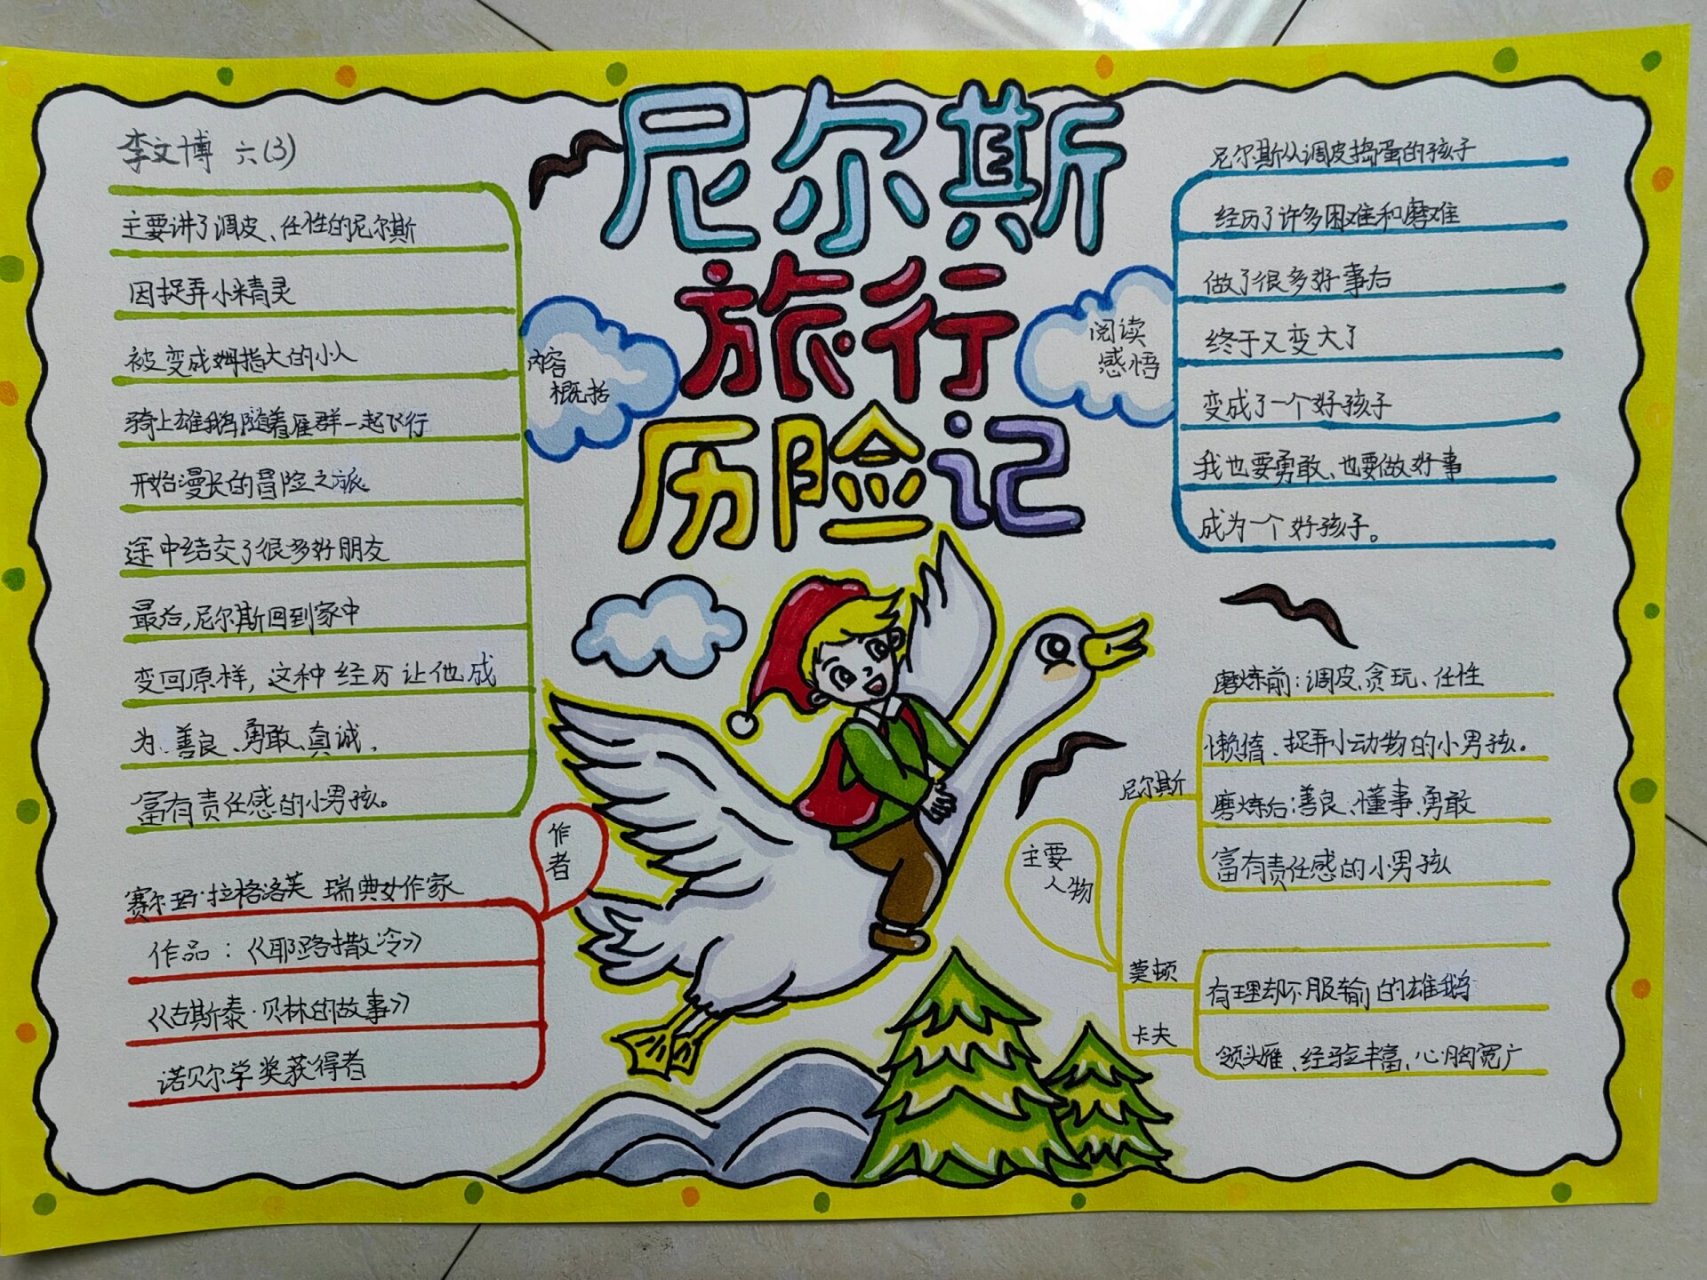 尼尔斯
旅行
历险记
李文博 六(3)
内容
概括
主要讲了调皮、任性的尼尔斯
因捉弄小精灵
被变成姆指大的小人
骑上雄鹅随着雁群一起飞行
开始漫长的冒险之旅
途中结交了很多好朋友
最后,尼尔斯回到家中
变回原样,这种经历让他成
为、善良、勇敢、真诚、
富有责任感的小男孩。
作者
赛尔玛·拉格洛芙 瑞典女作家
作品:《耶路撒冷》
《古斯泰·贝林的故事》
诺贝尔学奖获得者
阅读
感悟
尼尔斯从调皮捣蛋的孩子
经历了许多困难和磨难
做了很多好事后
终于又变大了
变成了一个好孩子
我也要勇敢、也要做好事
成为一个好孩子。
主要
人物
尼尔斯
磨炼前:调皮、贪玩、任性
懒惰、捉弄小动物的小男孩。
磨炼后:善良、懂事、勇敢
富有责任感的小男孩
莫顿
有理却不服输的雄鹅
卡夫
领头雁、经验丰富、心胸宽广